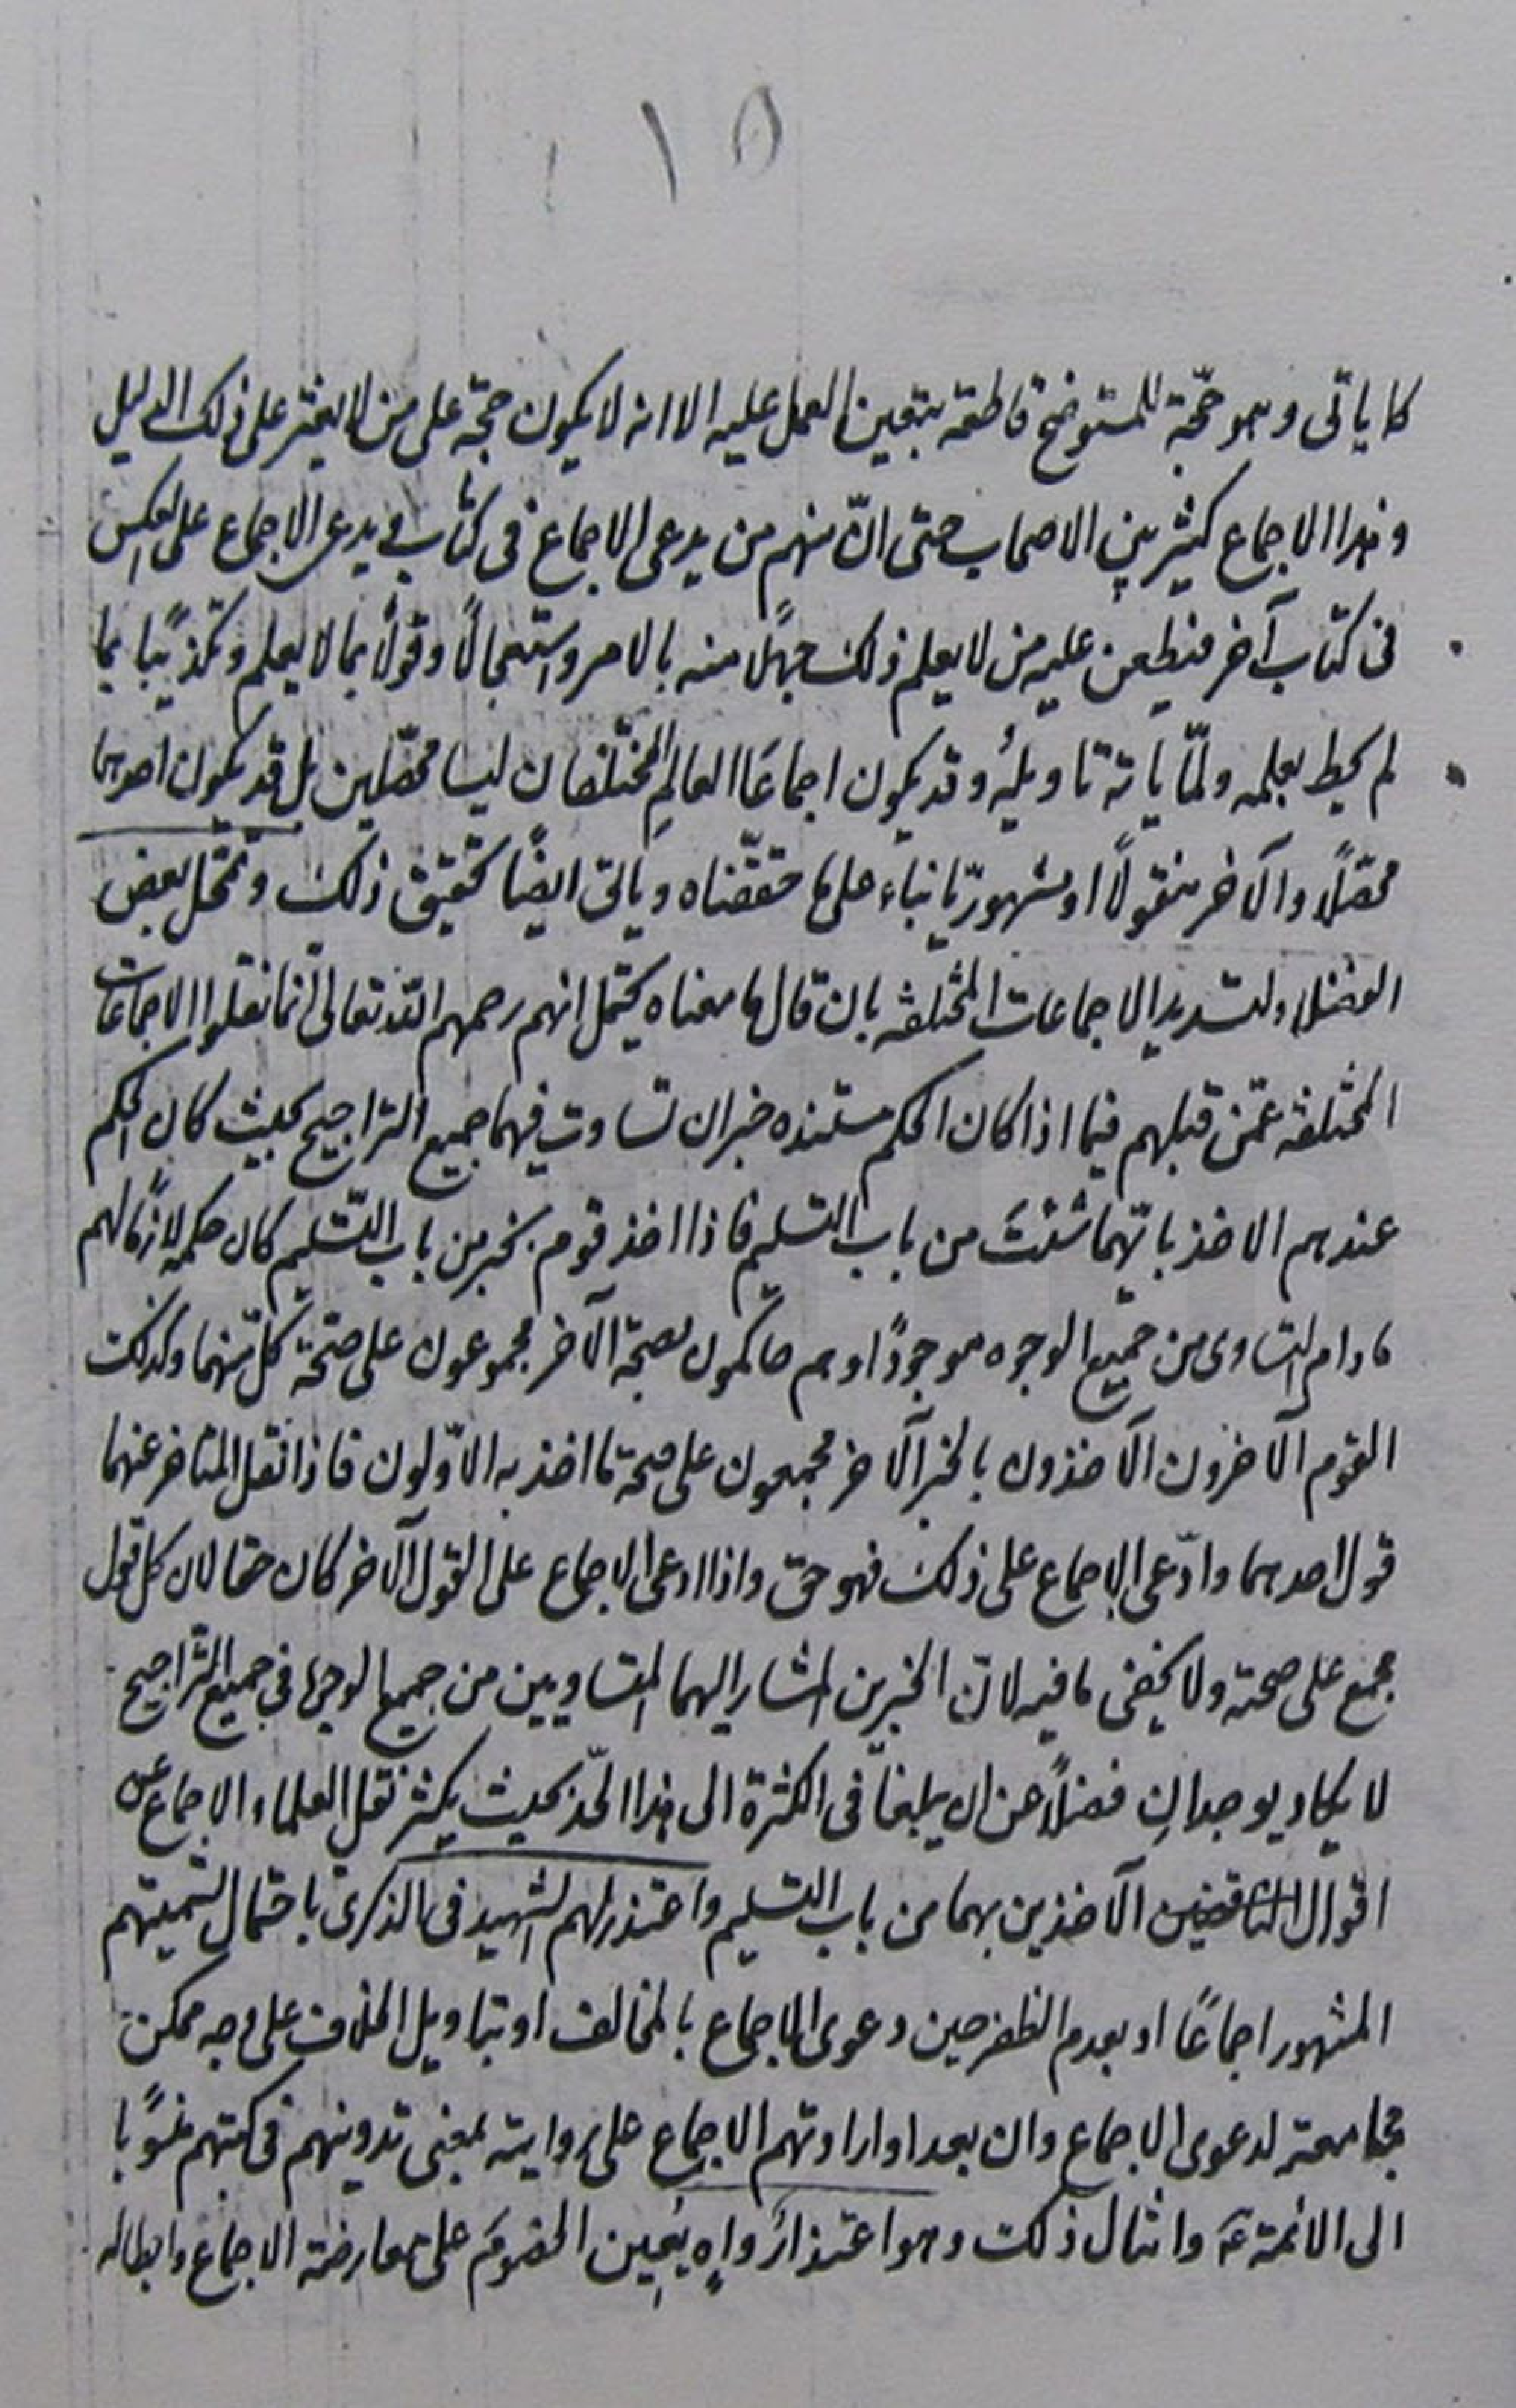 ١٥
كما ياتى وهو حجّة للمستوضح قاطعة يتعين العمل عليه الا انه لا يكون حجة على من لا يعثر على ذلك الدليل
وهذا الاجماع كثير بين الاصحاب حتى انّ منهم من يدعى الاجماع فى كتاب ويدعى الاجماع على العكس
فى كتاب آخر فيطعن عليه من لا يعلم ذلك جهلًا منه بالامر واستعجالًا وقولًا بما لا يعلم وتكذيبًا بما
لم يحط بعلمه ولمّا ياته تاويلُه وقد يكون اجماعَا العالِمِ المختلفان ليسا محصّلين بل قد يكون احدهما
محصّلًا والآخر منقولًا او مشهوريّا بناء على ما حققّناه وياتى ايضًا تحقيق ذلك وتمحّل بعض
الفضلاء لتسديد الاجماعات المختلفه بان قال ما معناه يحتمل انهم رحمهم الله تعالى انّما نقلوا الاجماعات
المختلفه عمّن قبلهم فيما اذا كان الحكم مستنده خبران تساوت فيهما جميع التراجيح بحيث كان الحكم
عندهم الاخذ بايّهما شئتَ من باب التسليم فاذا اخذ قوم بخبر من باب التّسليم كان حكمه لازمًا لهم
ما دام التساوى من جميع الوجوه موجودًا وهم حاكمون بصحة الآخر مجموعون على صحّة كلّ منهما وكذلك
القوم الآخرون الآخذون بالخبر الآخر مجمعون على صحة ما اخذ به الاوّلون فاذا نقل المتاخر عنهما
قول احدهما وادّعى الاجماع على ذلك فهو حق واذا ادعى الاجماع على القول الآخر كان حقا لان كل قول
مجمع على صحته ولا يخفى ما فيه لانّ الخبرين المشار اليهما المتساويين من جميع الوجوه فى جميع التراجيح
لا يكاد يوجدانِ فضلًا عن ان يبلغا فى الكثرة الى هذا الحّد بحيث يكثر نقل العلماء الاجماع عن
اقوال الآخذين بهما من باب التسليم واعتذر لهم الشهيد فى الذكرى باحتمال تسميتهم
المشهور اجماعًا او بعدم الظفر حين دعوى الاجماع بالمخالف او بتاويل الخلاف على وجه ممكن
مجامعته لدعوى الاجماع وان بعد او ارادتهم الاجماع على روايته بمعنى تدوينهم فى كتبهم منسوبًا
الى الائمة ع وامثال ذلك وهو اعتذارٌ واهٍ يُعين الخصومَ على معارضة الاجماع وابطاله